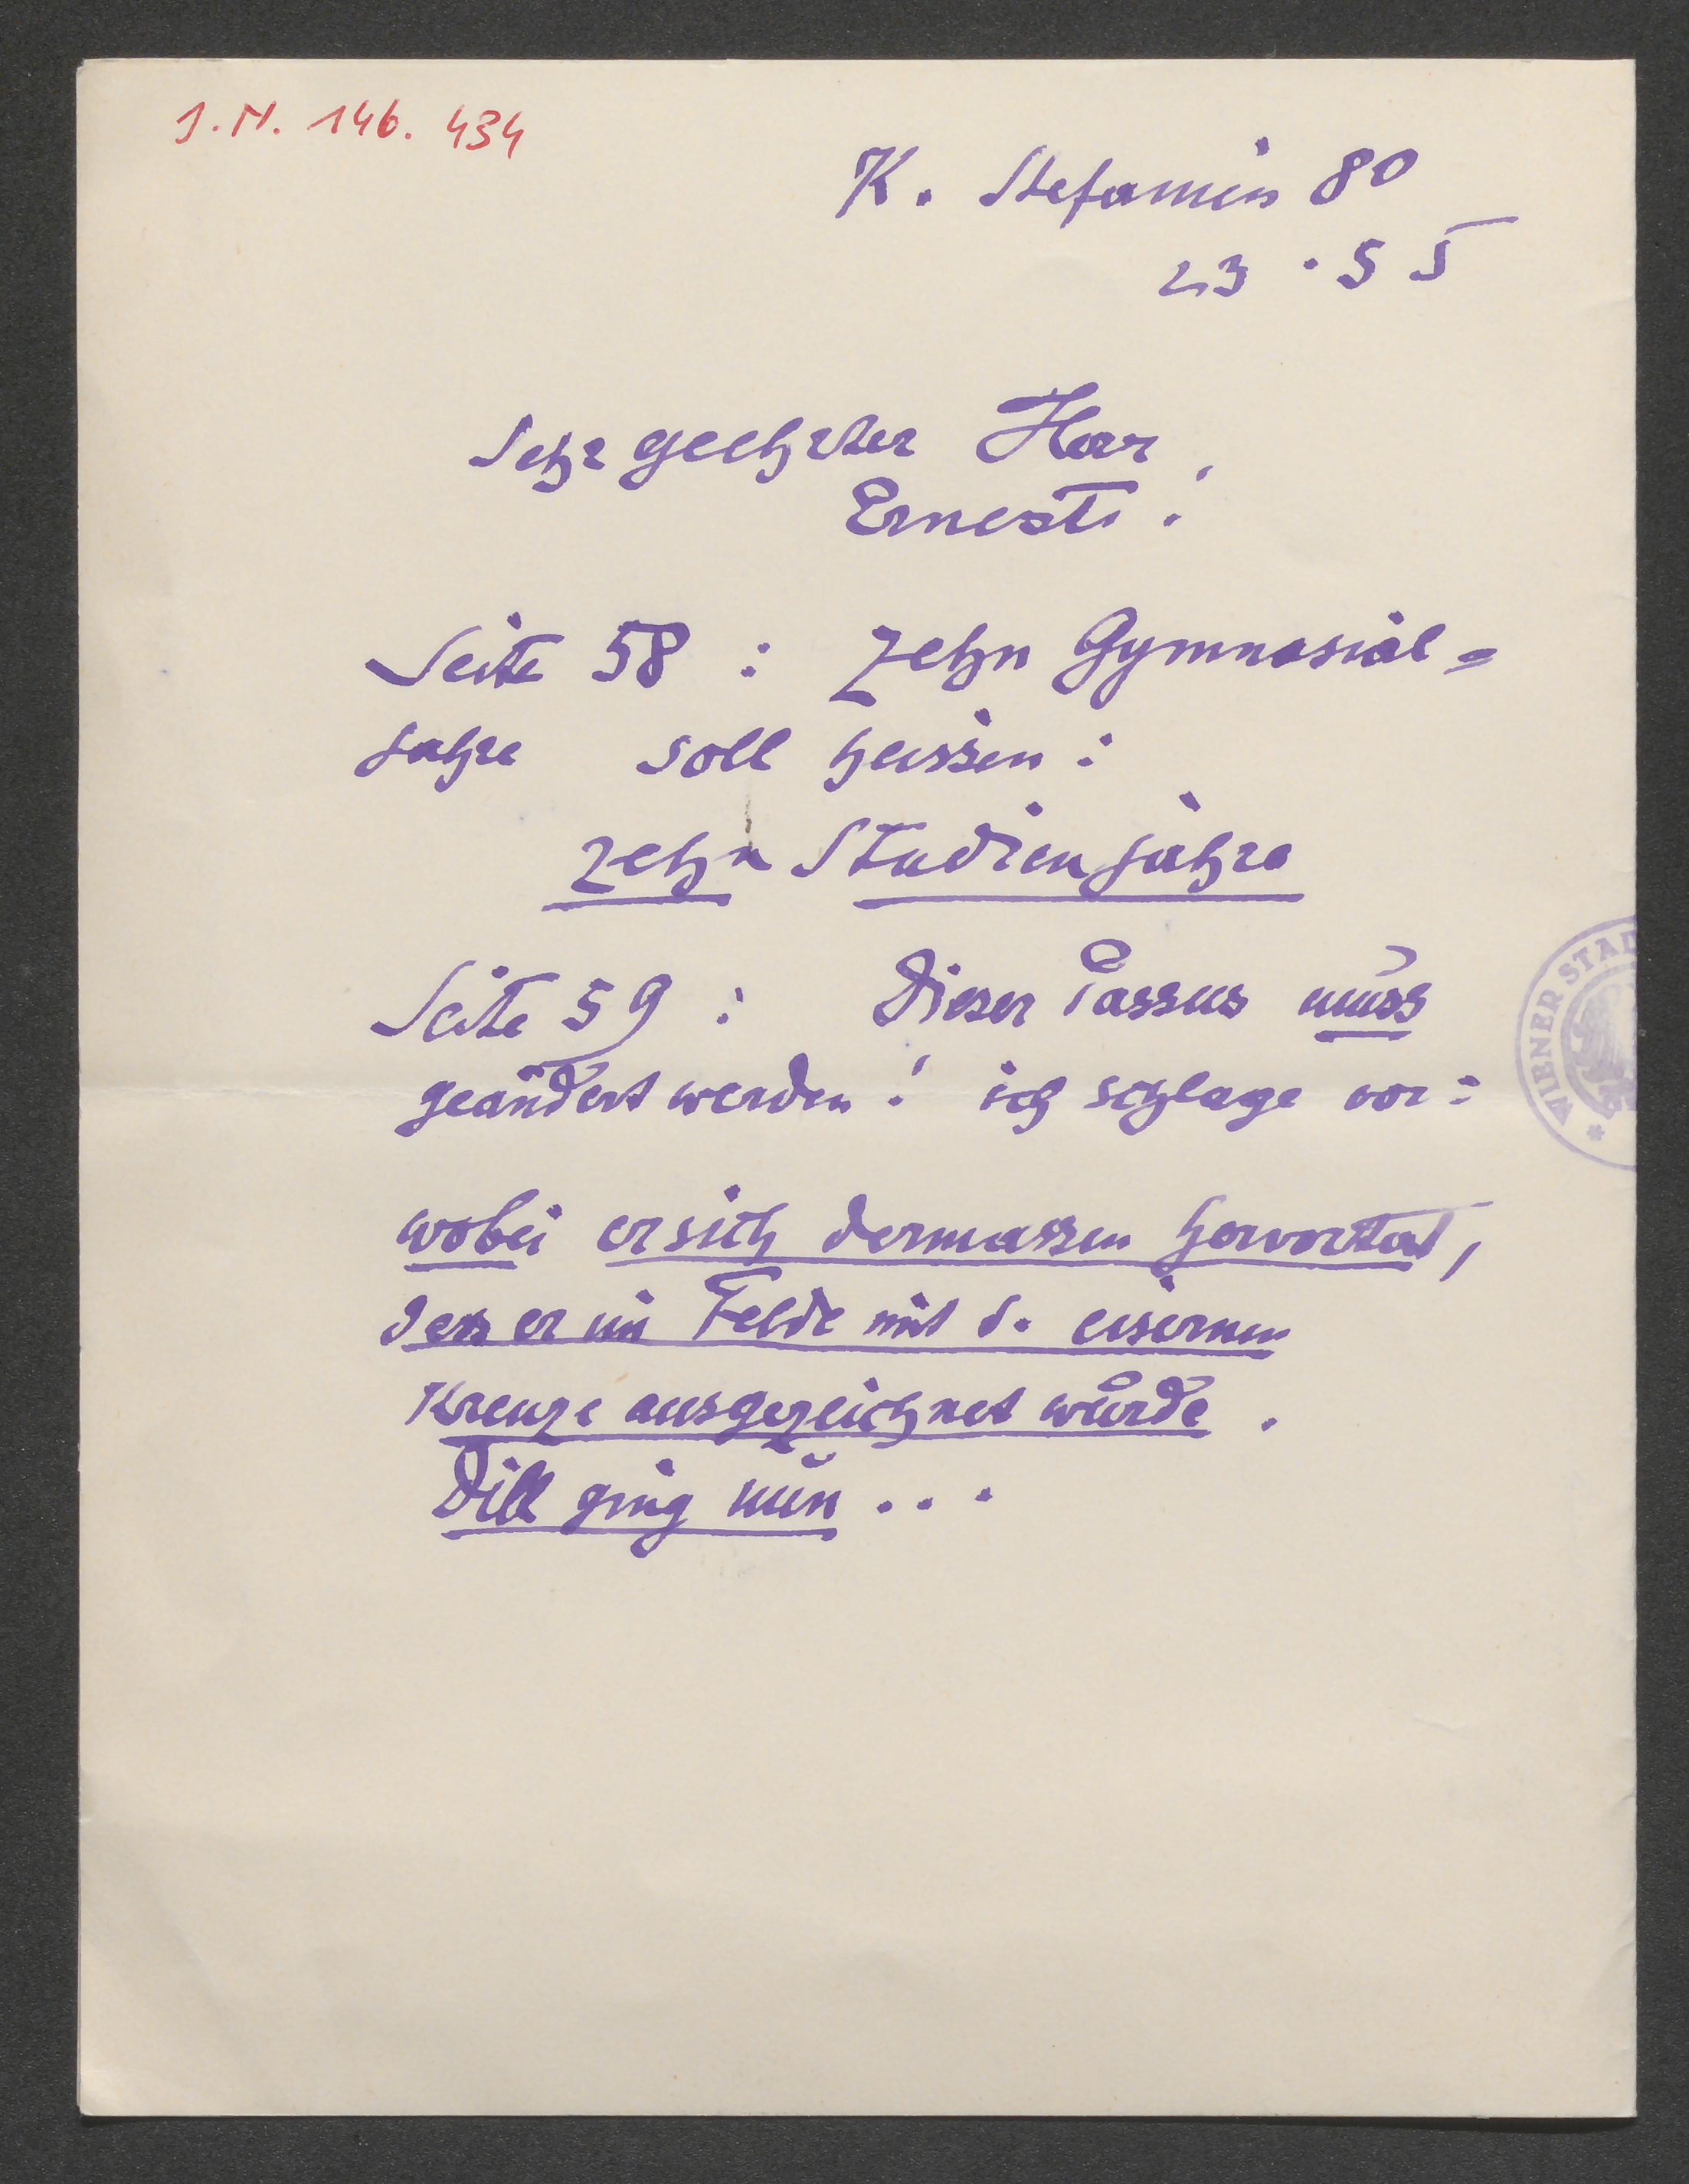 J.N. 146.434
K. Stefanien 80
23.5 5
Sehr geehrter Herr
Ernest!
Seite 58: Zehn Gymnasial=
jahre soll heissen:
zehn Studienjahre
Seite 59: Dieser Passus muss
geändert werden! ich schlage vor:
wobei er sich dermassen hervortat,
dass er im Felde mit d. eisernen
Kreuze ausgezeichnet wurde.
Dill ging nun...
WIENER STAD